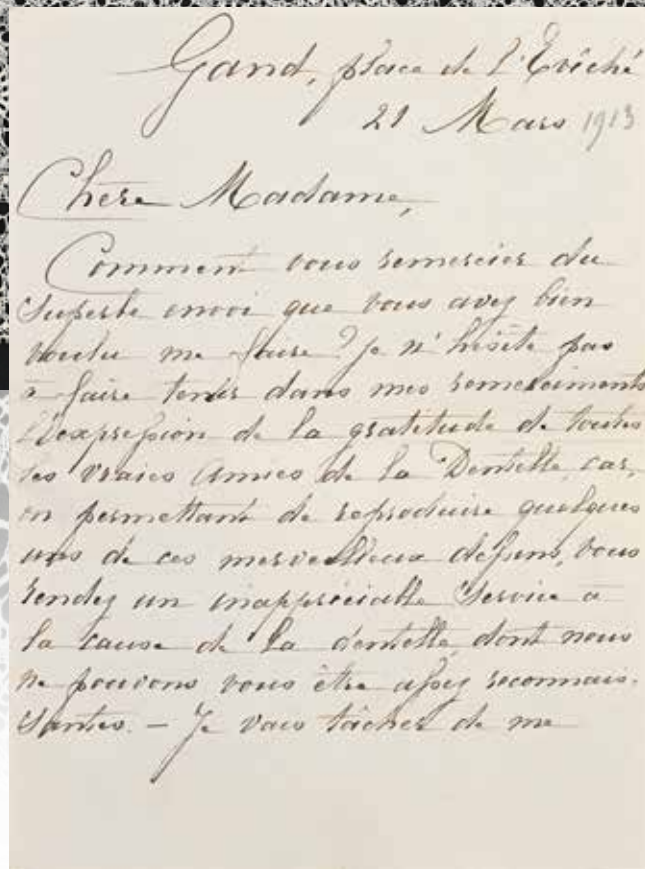 Gand, place de l'Evêché
21 Mars 1913
Chère Madame,
Comment vous remercier du
superbe envoi que vous avez bien
voulu me faire? Je n'hésite pas
à faire tenir dans mes remerciments
l'expression de la gratitude de toutes
les vraies amies de la Dentelle, car,
en permettant de reproduire quelques
uns de ces merveilleux dessins, vous
rendez un inappréciable service à
la cause de la dentelle, dont nous
ne pouvons vous être assez reconnais-
santes. — Je vais tâcher de me